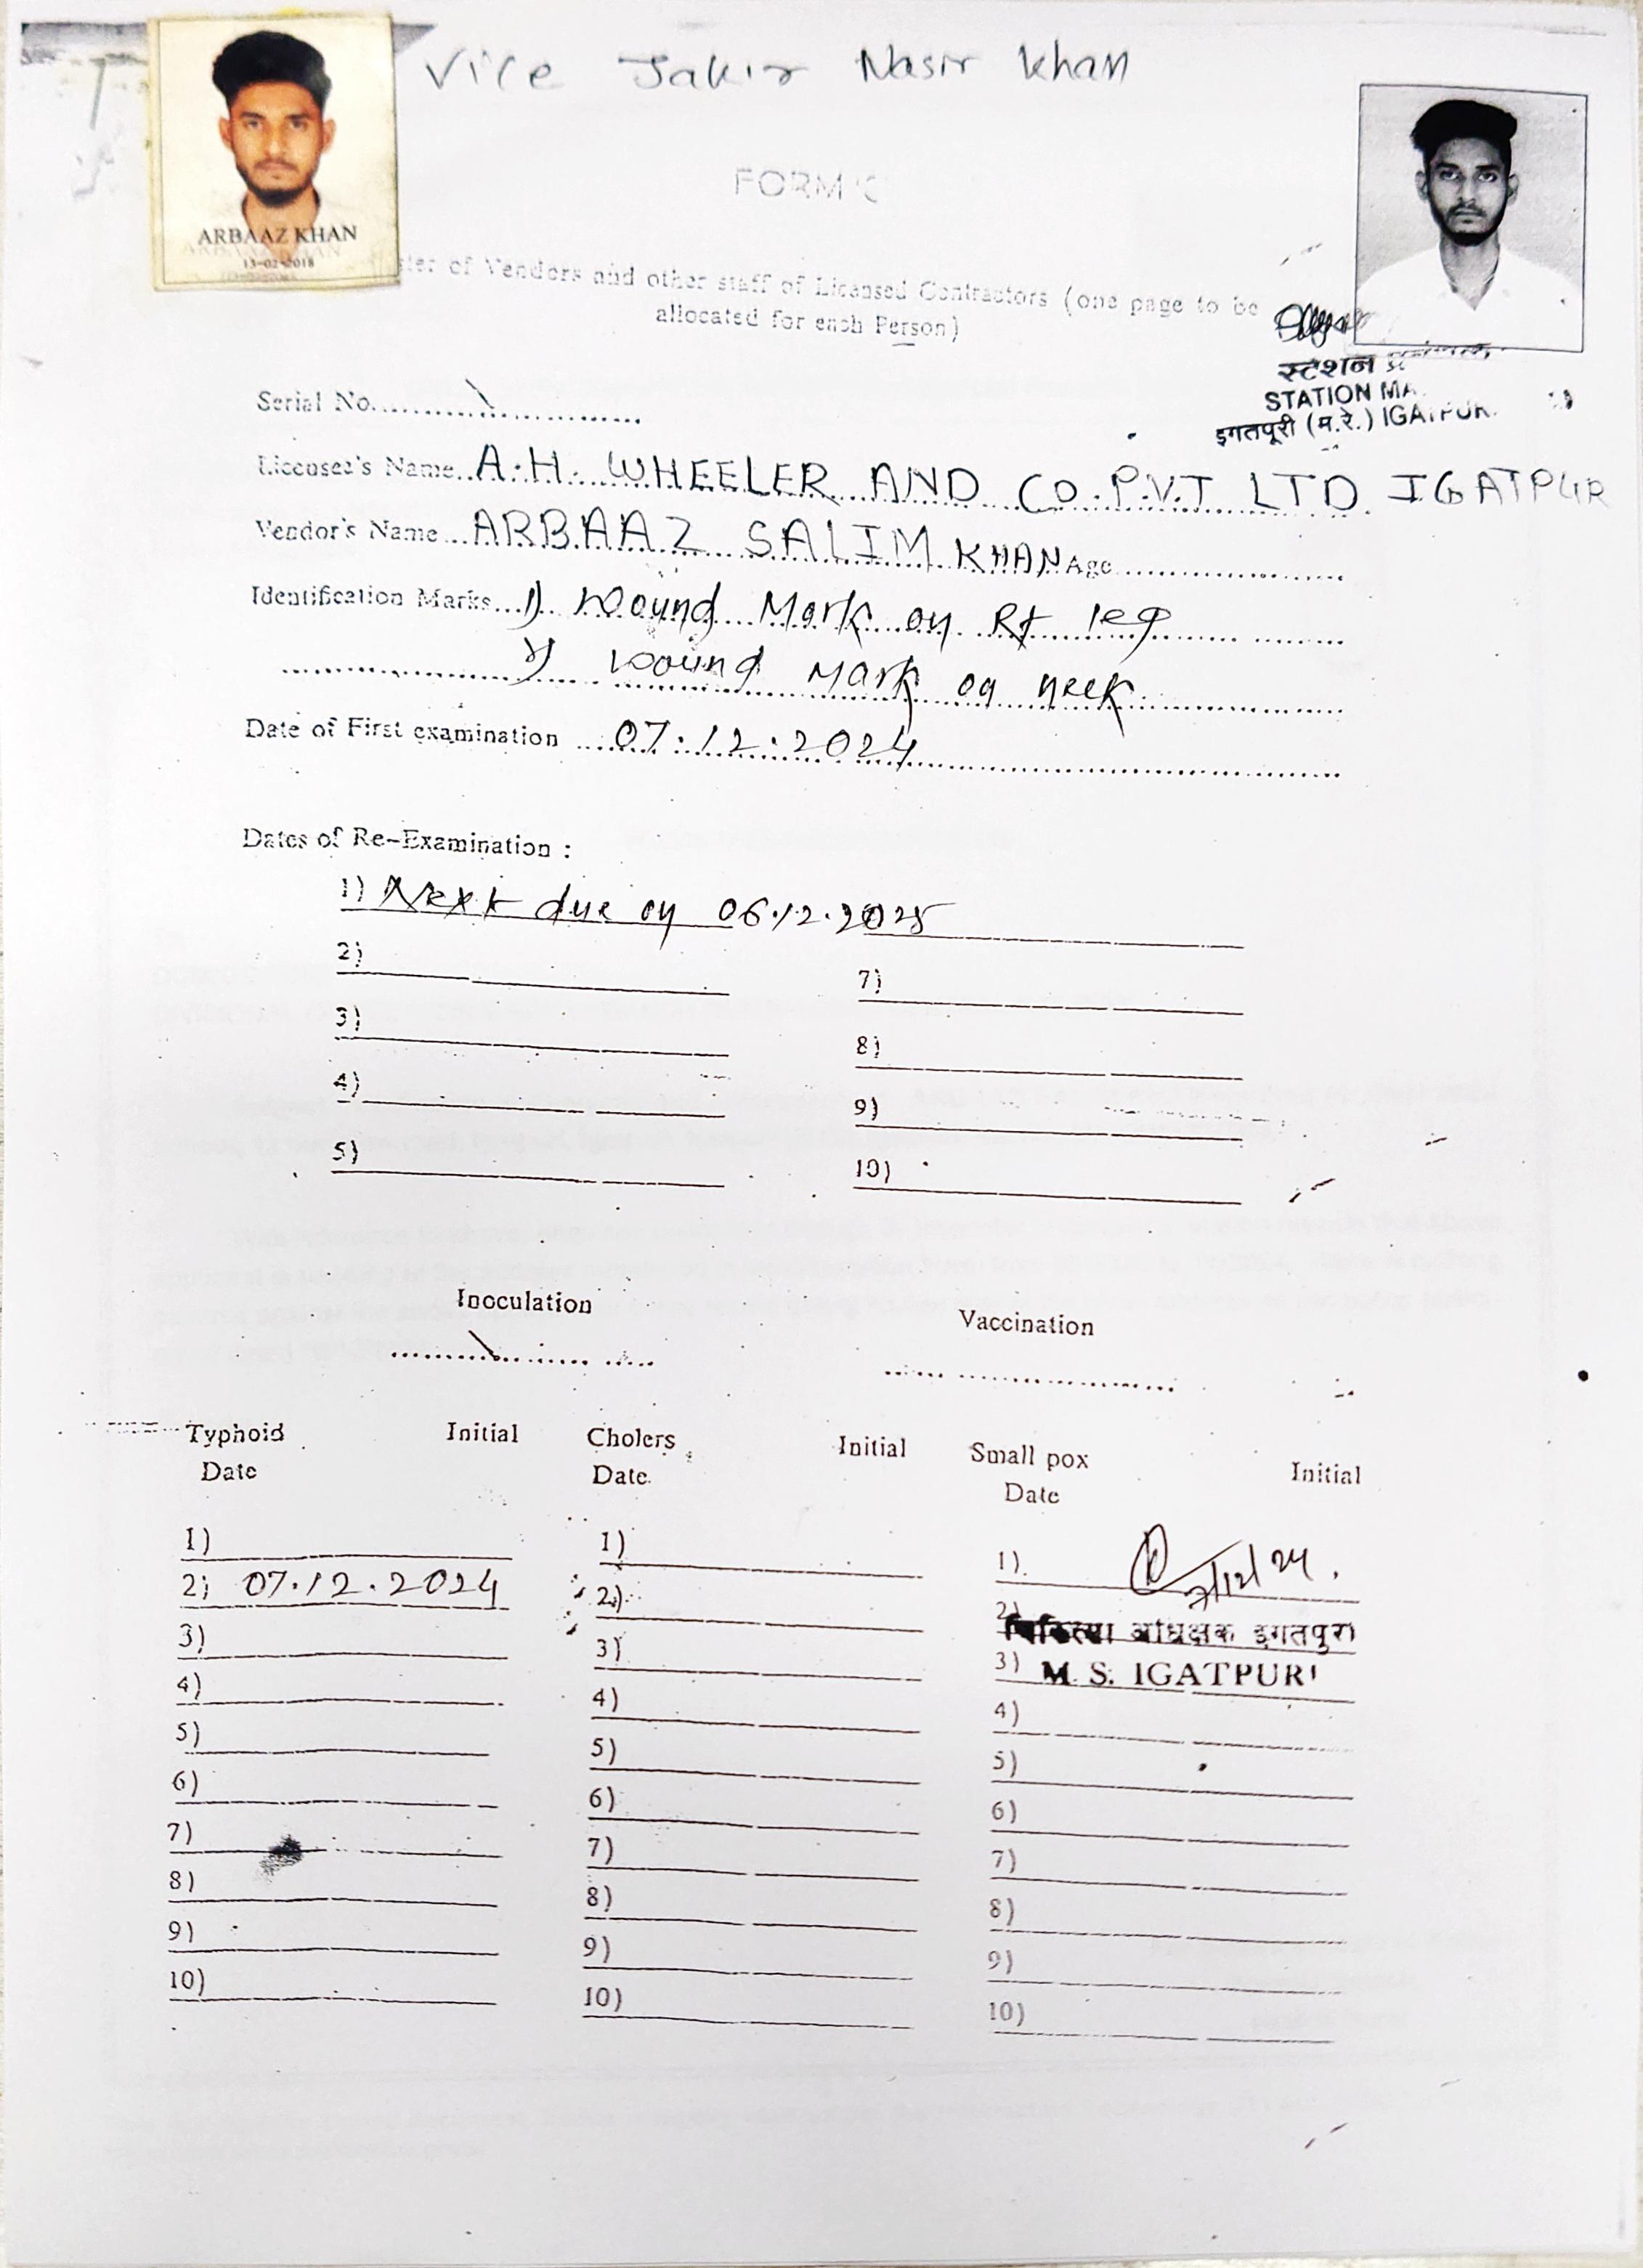 Vice Jakir Nasir Khan
ARBAAZ KHAN
13-02-2018
FORM 'C
of Vendors and other staff of Licensed Contractors (one page to be
allocated for each Person)
स्टेशन
STATION MA
इगतपूरी (म.रे.) IGATPUR
Serial No.
Licensee's Name A.H. WHEELER AND CO.P.V.T LTD IGATPUR
Vendor's Name ARBAAZ SALIM KHAN Age
Identification Marks 1) wound Mark on Rt leg
2) wound Mark on neck
Date of First examination 07.12.2024
Dates of Re-Examination :
1) Next due on 06.12.2025
2)
7)
3)
8)
4)
9)
5)
10)
Inoculation Vaccination
Typhoid Initial Cholers Initial Small pox Initial
Date Date. Date
1) 1) 1)
2) 07.12.2024 2) 2)
चिकित्सा अधिक्षक इगतपुरी
3) 3) 3) M. S. IGATPURI
4) 4) 4)
5) 5) 5)
6) 6) 6)
7) 7) 7)
8) 8) 8)
9) 9) 9)
10) 10) 10)